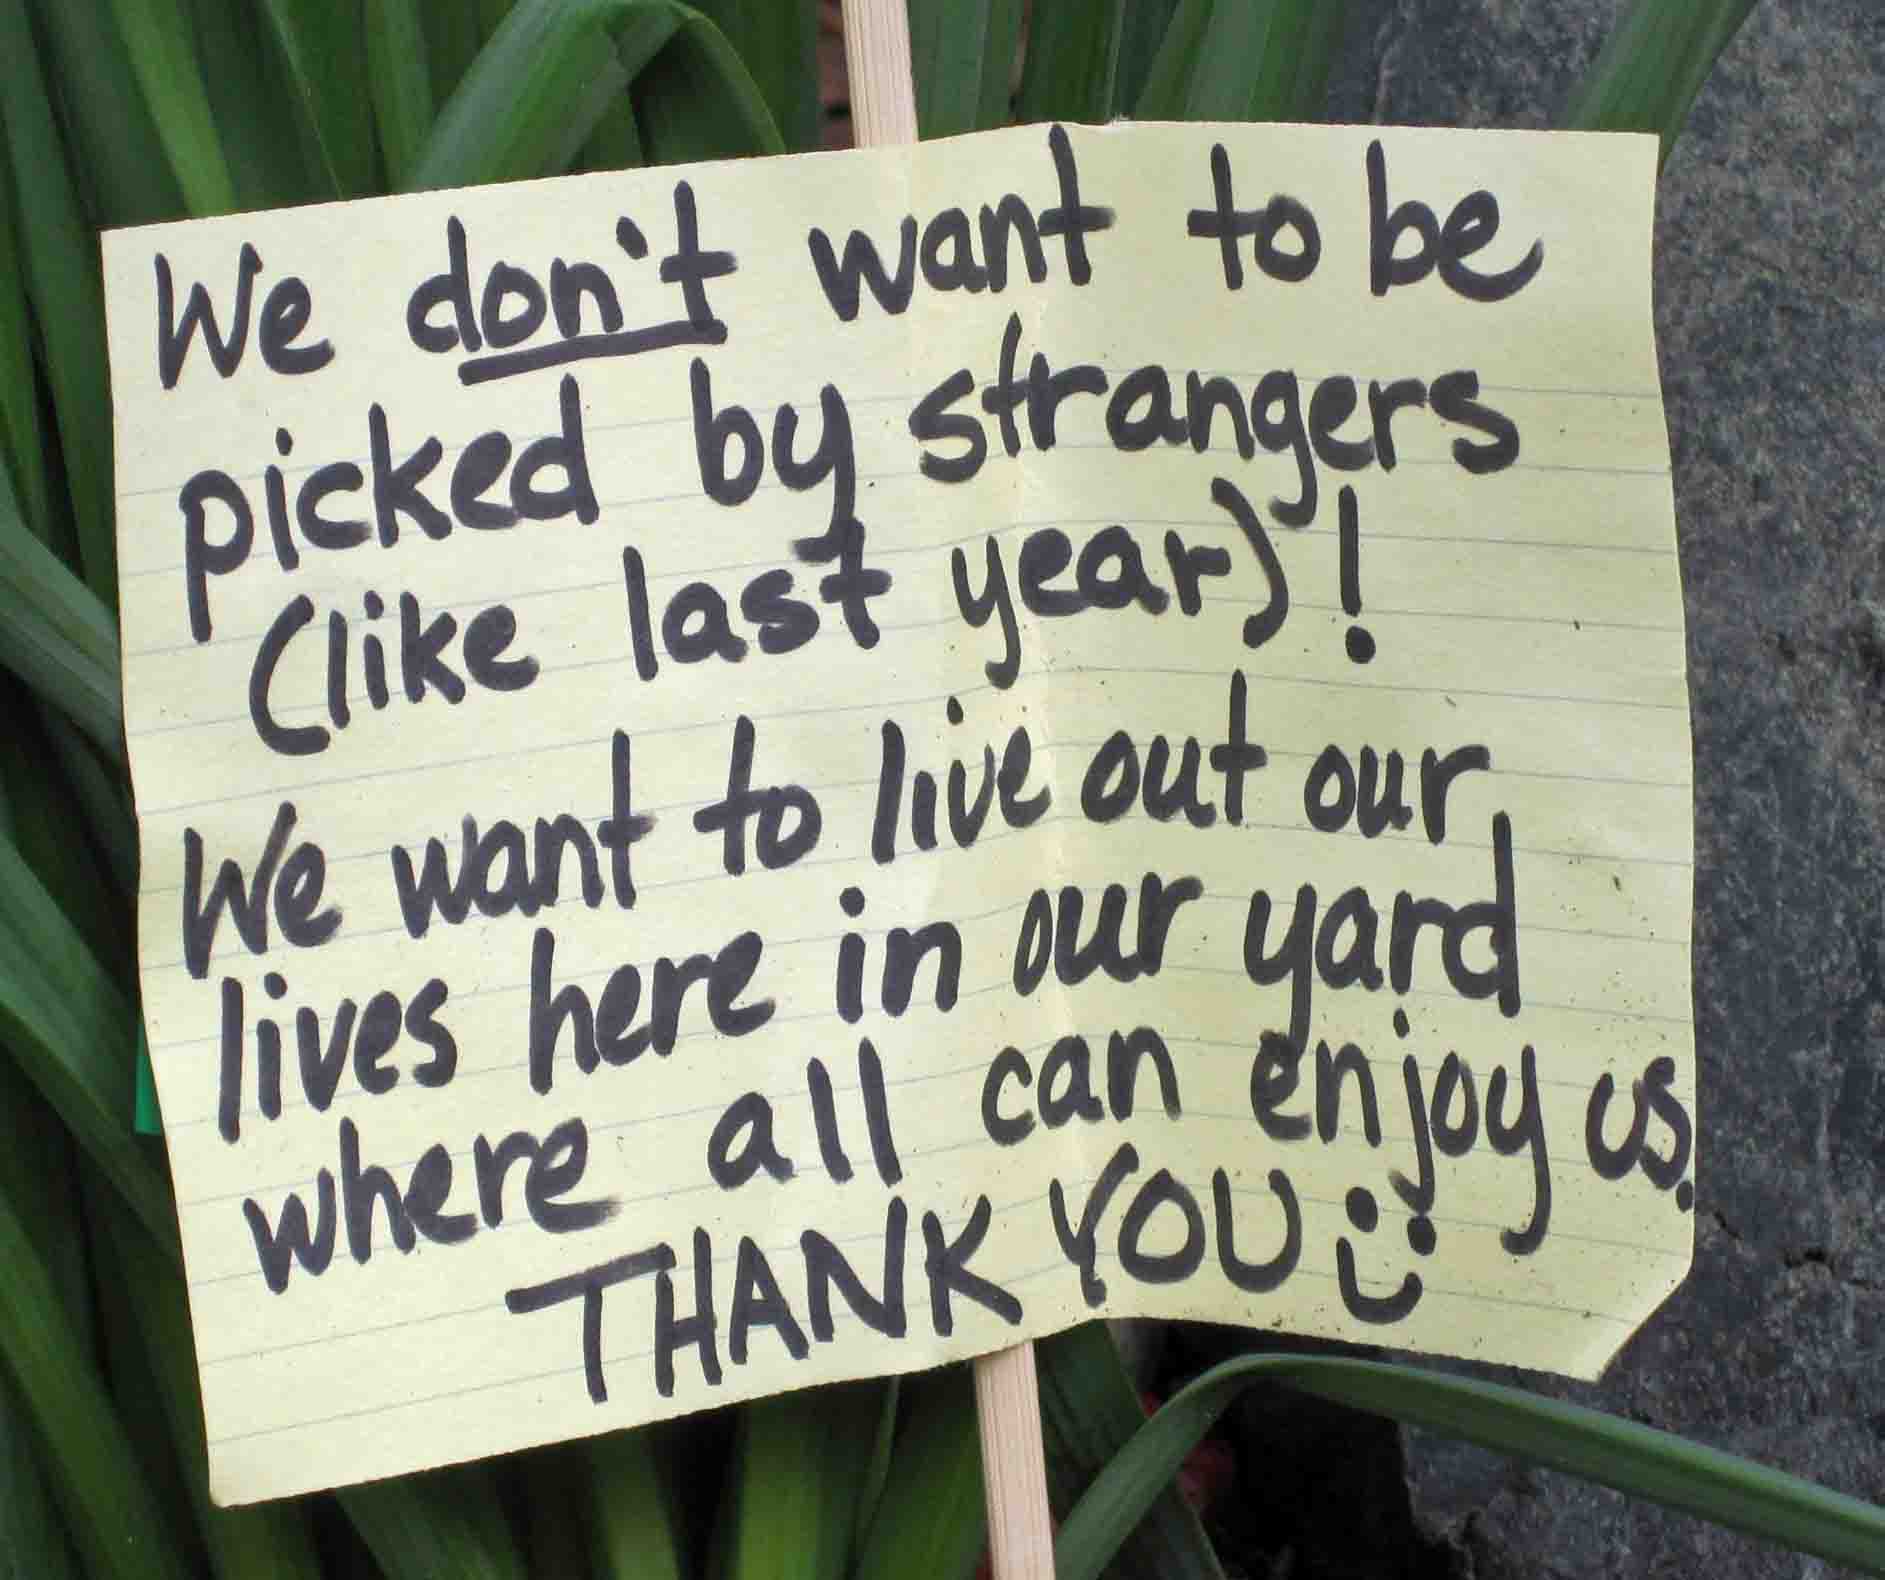 We don't want to be
picked by strangers
(like last year)!
We want to live out our
lives here in our yard
where all can enjoy us.
THANK YOU :)